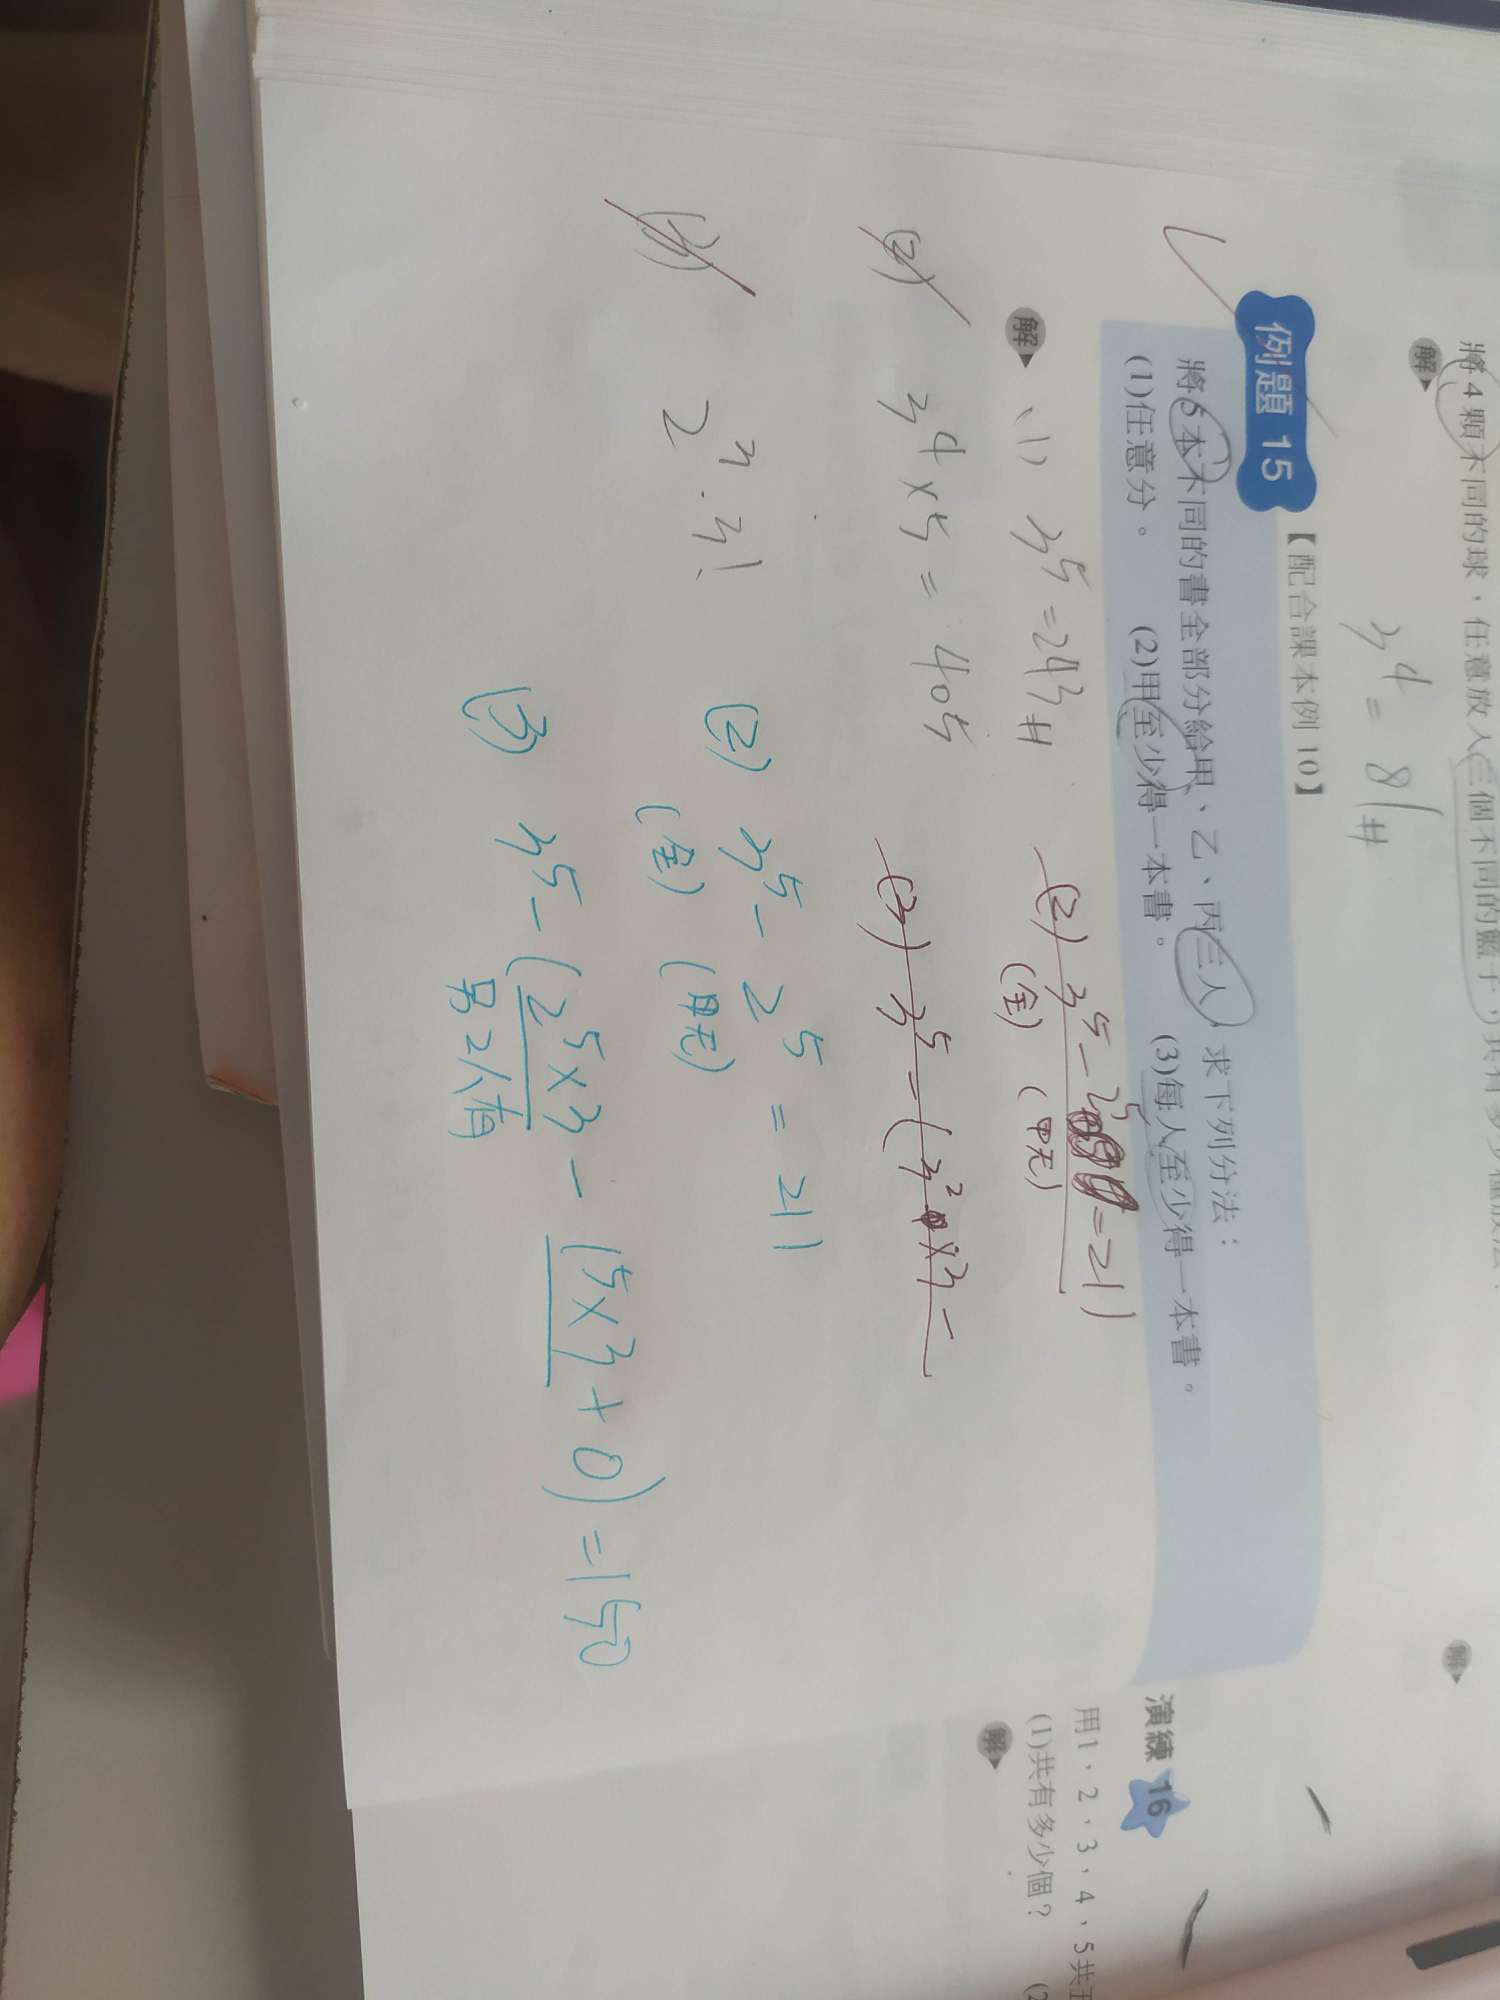 將4顆不同的球，任意放入三個不同的籃子，共有多少種放法？
解
3⁴ = 81 #
例題 15 【配合課本例 10】
將5本不同的書全部分給甲、乙、丙三人，求下列分法：
(1)任意分。 (2)甲至少得一本書。 (3)每人至少得一本書。
解 (1) 3⁵ = 243 #
(2) 3⁵ - 2⁵ = 211
(全) (甲无)
(2) 3⁴ × 5 = 405
(3) 3⁵ - (3² × 3 -
(3) 2³ · 3!
(2) 3⁵ - 2⁵ = 211
(全) (甲无)
(3) 3⁵ - (2⁵×3 - 15×3 + 0) = 150
另2人有
解
演練 16
用1，2，3，4，5共五
(1)共有多少個？ (2
解